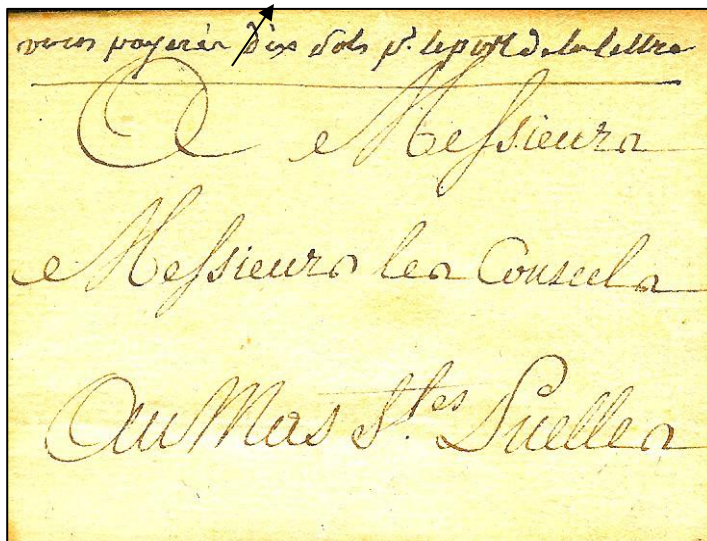 vous payerés dix sols pr. le port de la lettre
A Messieurs
Messieurs les Consuls
Au Mas Stes Puelles